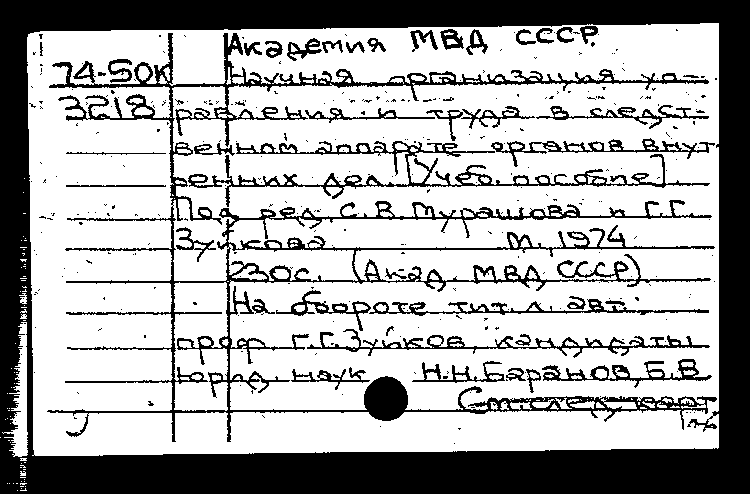 Академия МВД СССР
74-50К Научная организация уп-
3218 равления и труда в следст-
венном аппарате органов внут-
ренних дел. [Учеб. пособие].
Под ред. С.В. Мурашова и Г.Г.
Зуйкова М., 1974
230с. (Акад. МВД СССР)
На обороте тит. л. авт.:
проф. Г.Г. Зуйков, кандидаты
юрид. наук Н.Н. Баранов, Б.В
См. след. карт